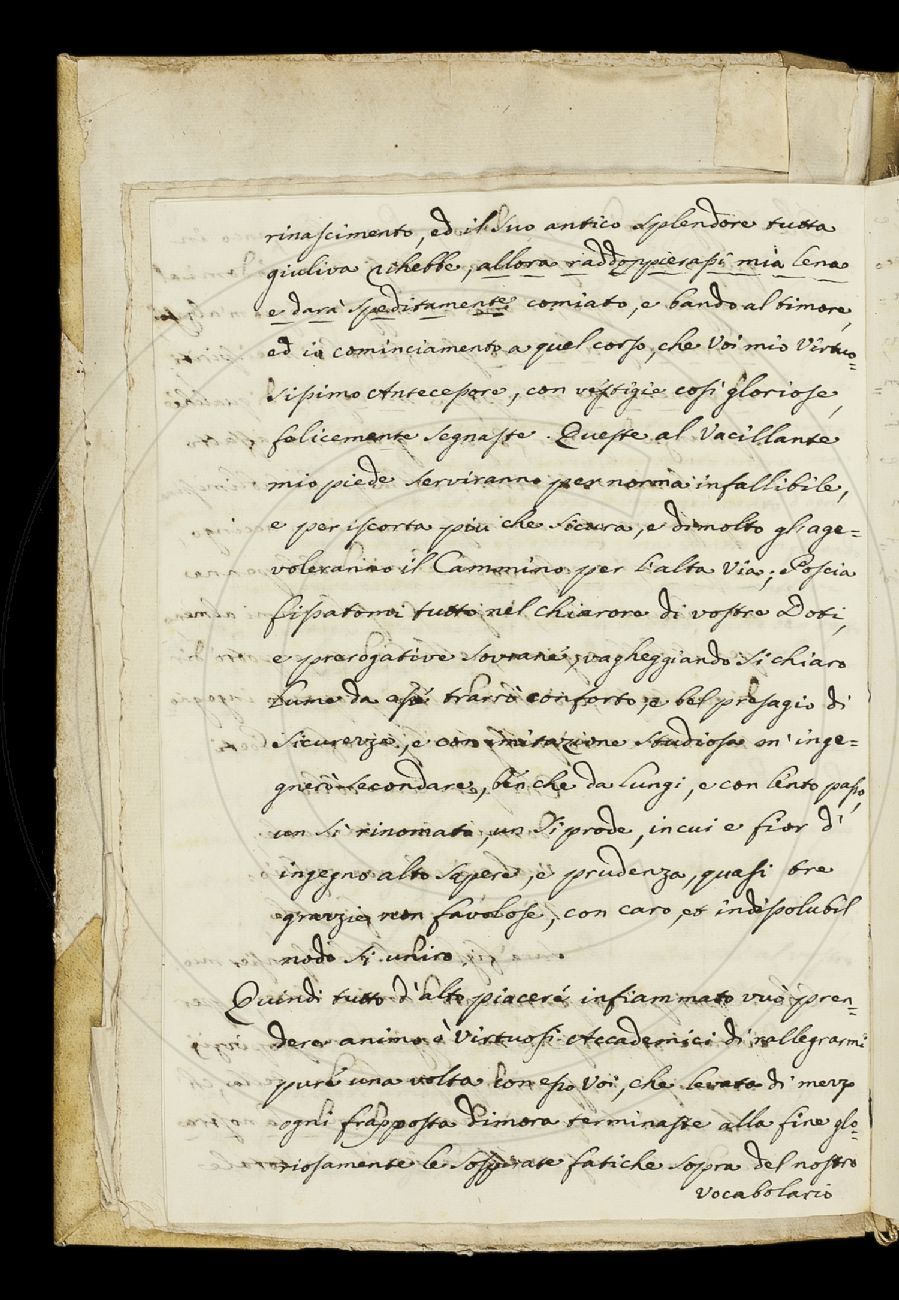 rinascimento, ed il suo antico splendore tutta
giuliva rihebbe, allora raddoppierassi mia lena
e darà speditamente comiato, e bando al timore,
ed io cominciamento a quel corso, che Voi mio Virtuo=
sissimo Antecessore, con vestigie così gloriose,
felicemente segnaste. Queste al vacillante
mio piede serviranno per norma infallibile,
e per iscorta più che sicura, e dimolto gli age=
voleranno il Cammino per l'alta via; e Poscia
fissatomi tutto nel chiarore di vostre Doti,
e prerogative sovrane, vagheggiando sì chiaro
Lume da essé trarrò conforto, e bel presagio di
sicurezza, e con imitazione studiosa m'inge=
gnerò secondare, ben che da lungi, e con lento passo,
un sì rinomato, un sì prode, in cui e fior d'
ingegno alto sapere, e prudenza, quasi tre
grazzie non favolose, con caro, et indissolubil
nodo si uniro.
Quindi tutto d'alto piacere infiammato vuò pren=
derer animo ò Virtuosi Accademici di rallegrarmi
pure una volta con esso Voi, che levata di mezzo
ogni frapposta Dimora terminaste alla fine glo=
riosamente le sospirate fatiche sopra del nostro
vocabolario